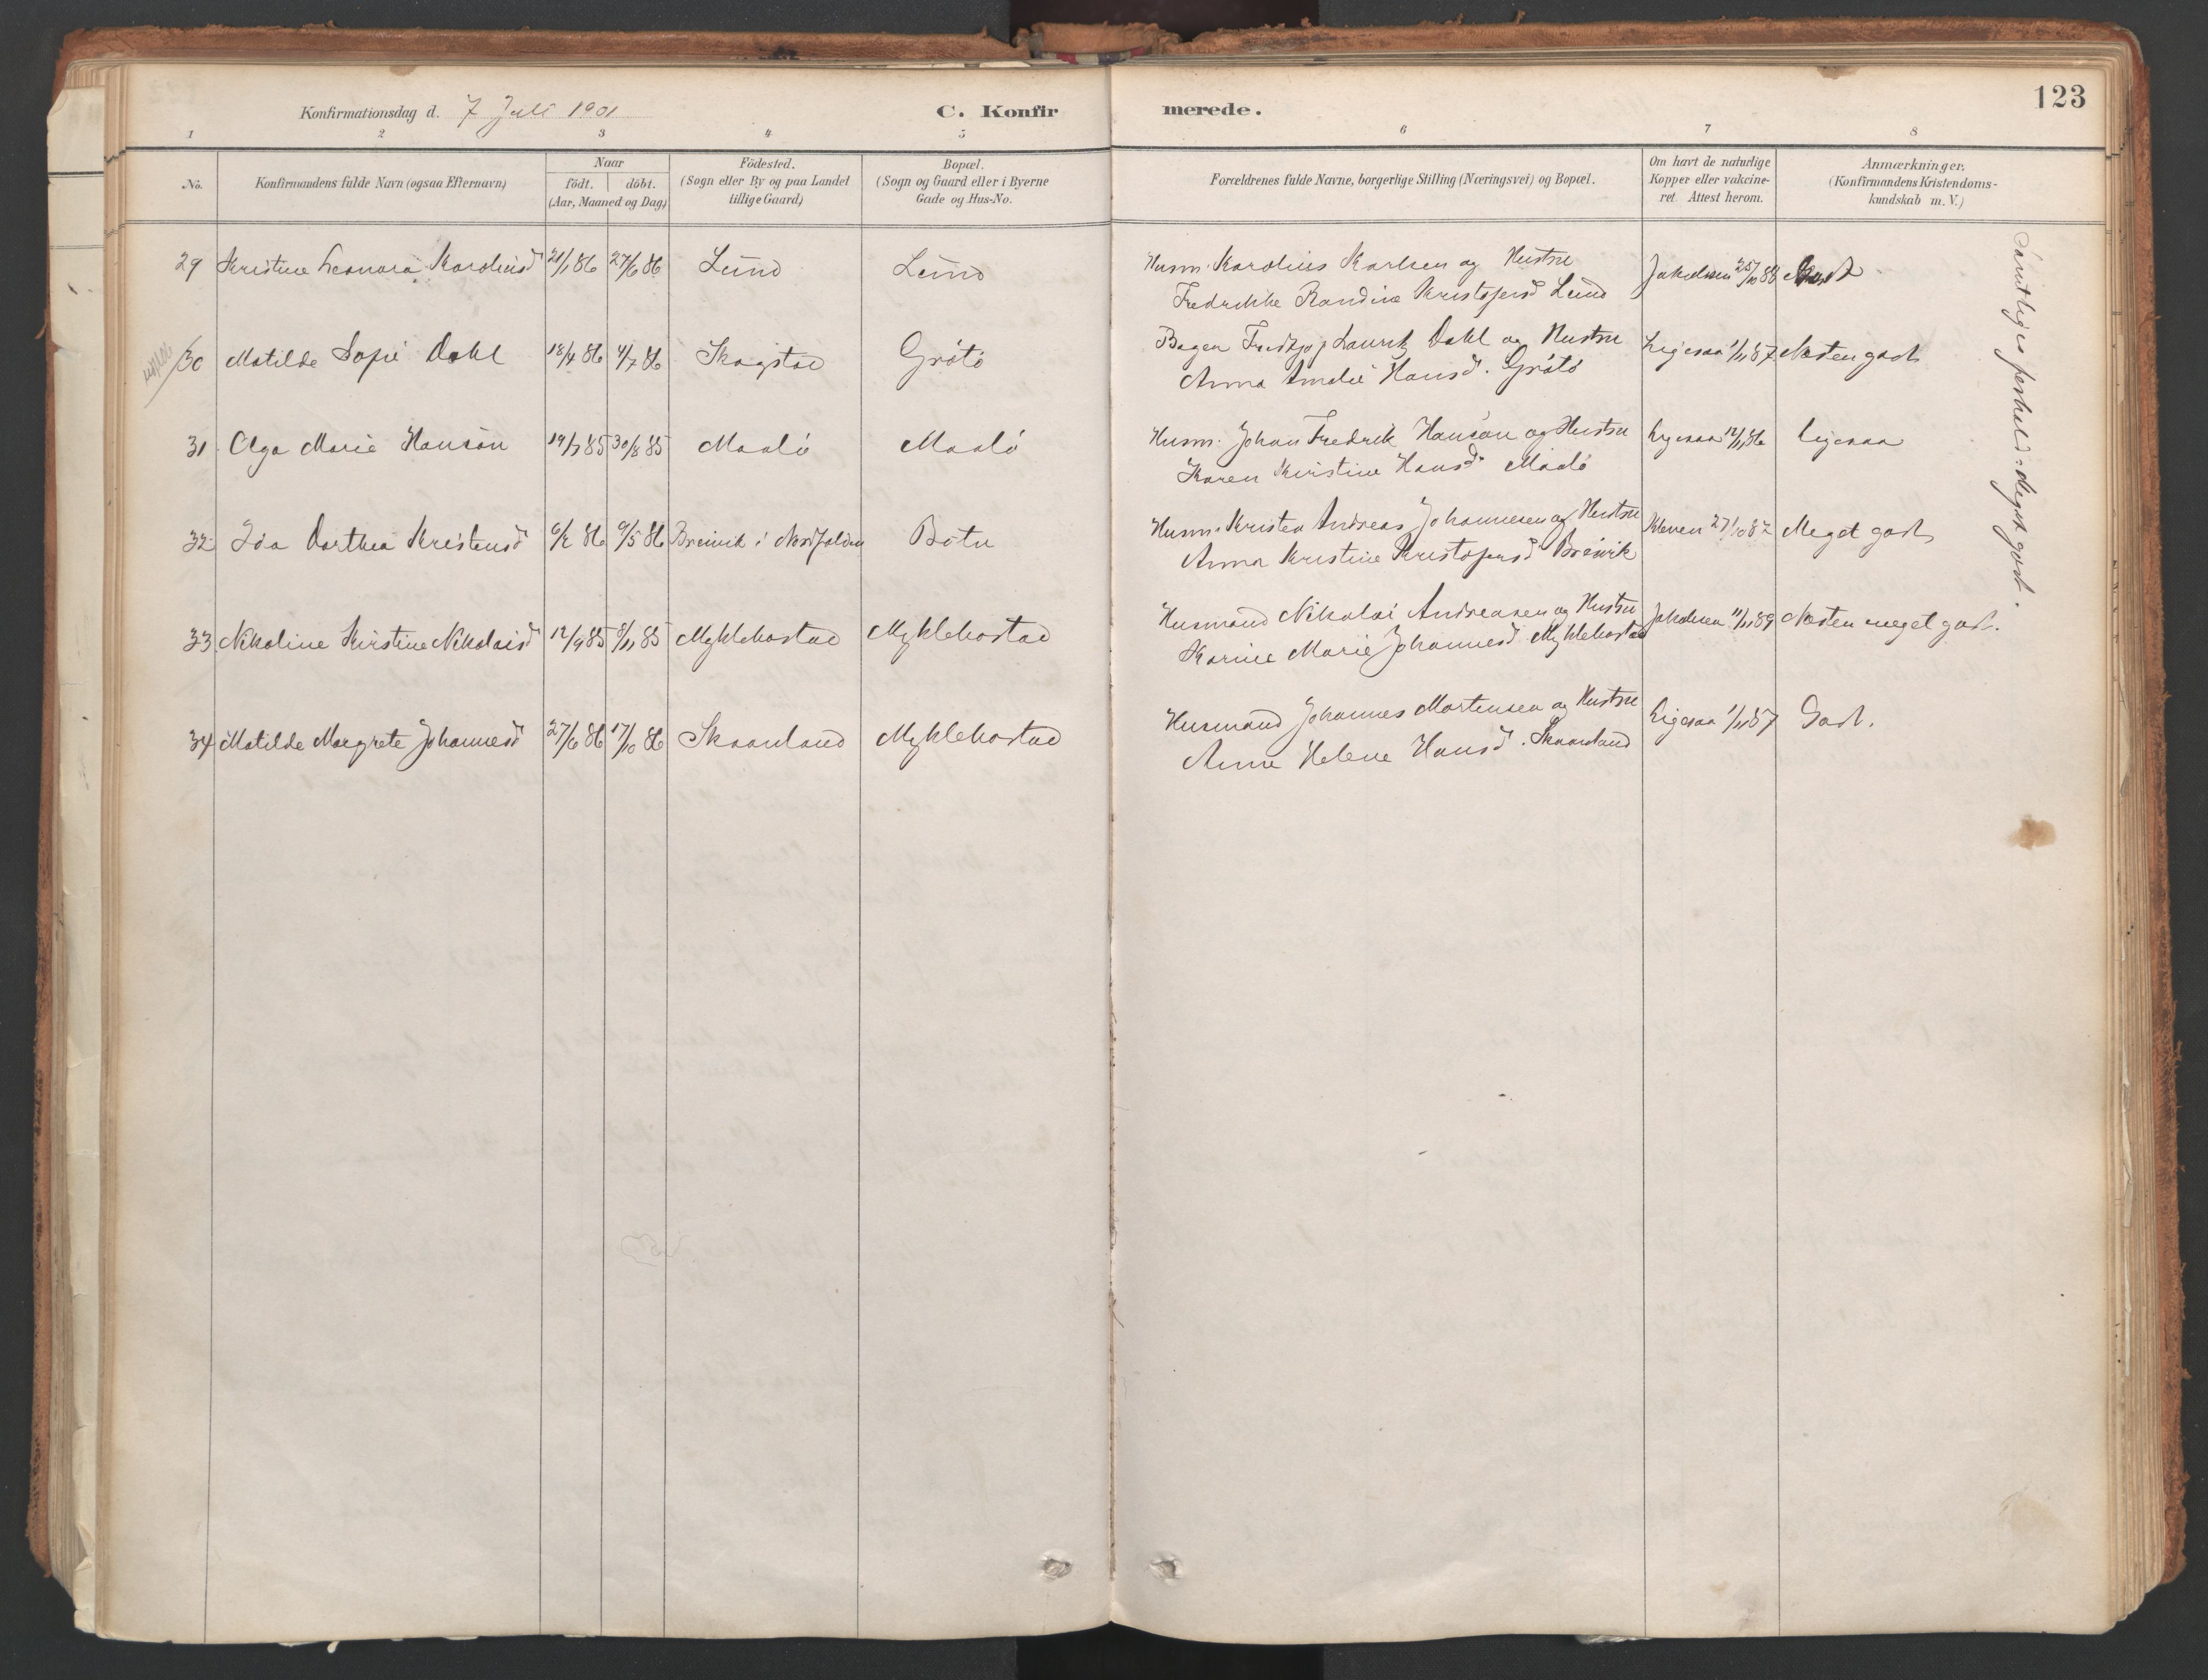 123
Konfirmationsdag d. 7 Juli 1901
C. Konfirmerede.
1 2 3 4 5 6 7 8
No.
Konfirmandens fulde Navn (ogsaa Efternavn)
Naar
födt. | döbt.
(Aar, Maaned og Dag)
Födested.
(Sogn eller By og paa Landet
tillige Gaard)
Bopæl.
(Sogn og Gaard eller i Byerne
Gade og Hus-No.
Forældrenes fulde Navne, borgerlige Stilling (Næringsvei) og Bopæl.
Om havt de naturlige
Kopper eller vakcine-
ret. Attest herom.
Anmærkninger.
(Konfirmandens Kristendoms-
kundskab m. V.)
29 Kristine Leonora Karoliusd 21/1 86 27/6 86 Lund Lund
Husm. Karolius Karlsen og Hustru
Fredrikke Randine Kristofersd Lund
Jakobsen 25/10 88
30 Matilde Sofie Dahl 18/4 86 4/7 86 Skogstad Grötö
Bager Fridtjof Lauritz Dahl og Hustru
Anna Amalie Hansd. Grötö
Ligesaa 1/11 87 Næsten godt
31 Olga Marie Hanson 19/7 85 30/8 85 Maalö Maalö
Husm. Johan Fredrik Hanson og Hustru
Karen Kirstine Hansd. Maalö
Ligesaa 12/11 86 Ligesaa
32 Ida Dorthea Kristensd 6/2 86 9/5 86 Breivik i Nordfolden Botn
Husm. Kristen Andreas Johannesen og Hustru
Anna Kristine Kristofersd Breivik
Kleven 27/10 87 Meget godt
33 Nikoline Kirstine Nikolaisd 12/9 85 8/11 85 Myklebostad Myklebostad
Husmand Nikolai Andreasen og Hustru
Karine Marie Johannesd Myklebostad
Jakobsen 11/11 89 Næsten meget godt.
34 Matilde Margrete Johannesd 27/6 86 17/10 86 Skaanland Myklebostad
Husmand Johannes Mortensen og Hustru
Anne Helene Hansd. Skaanland
Ligesaa 1/11 87 Godt.
Samtliges forhold: Meget godt.